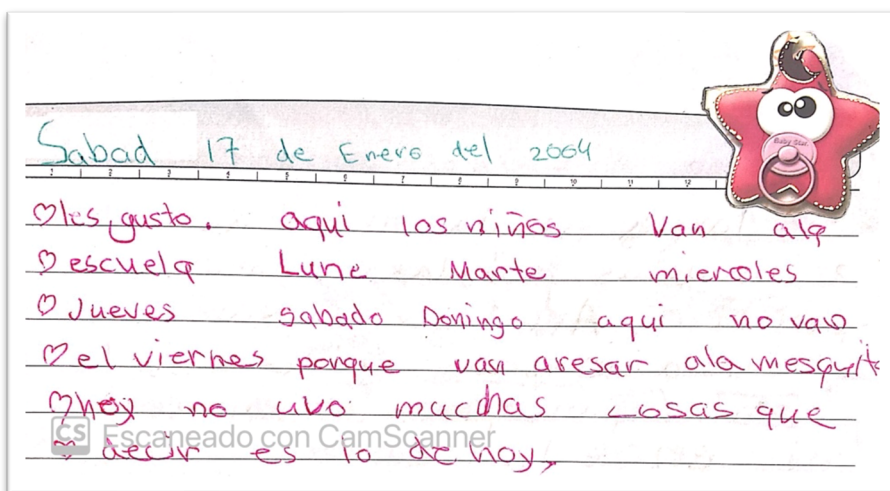 Baby Star
Sabad 17 de Enero del 2004
les, gusto. aqui los niños Van ala
escuela Lune Marte miercoles
Jueves sabado Doningo aqui no van
el viernes porque van aresar ala mesquit
hoy no uvo mucchas cosas que
decir es lo de hoy,
CS Escaneado con CamScanner